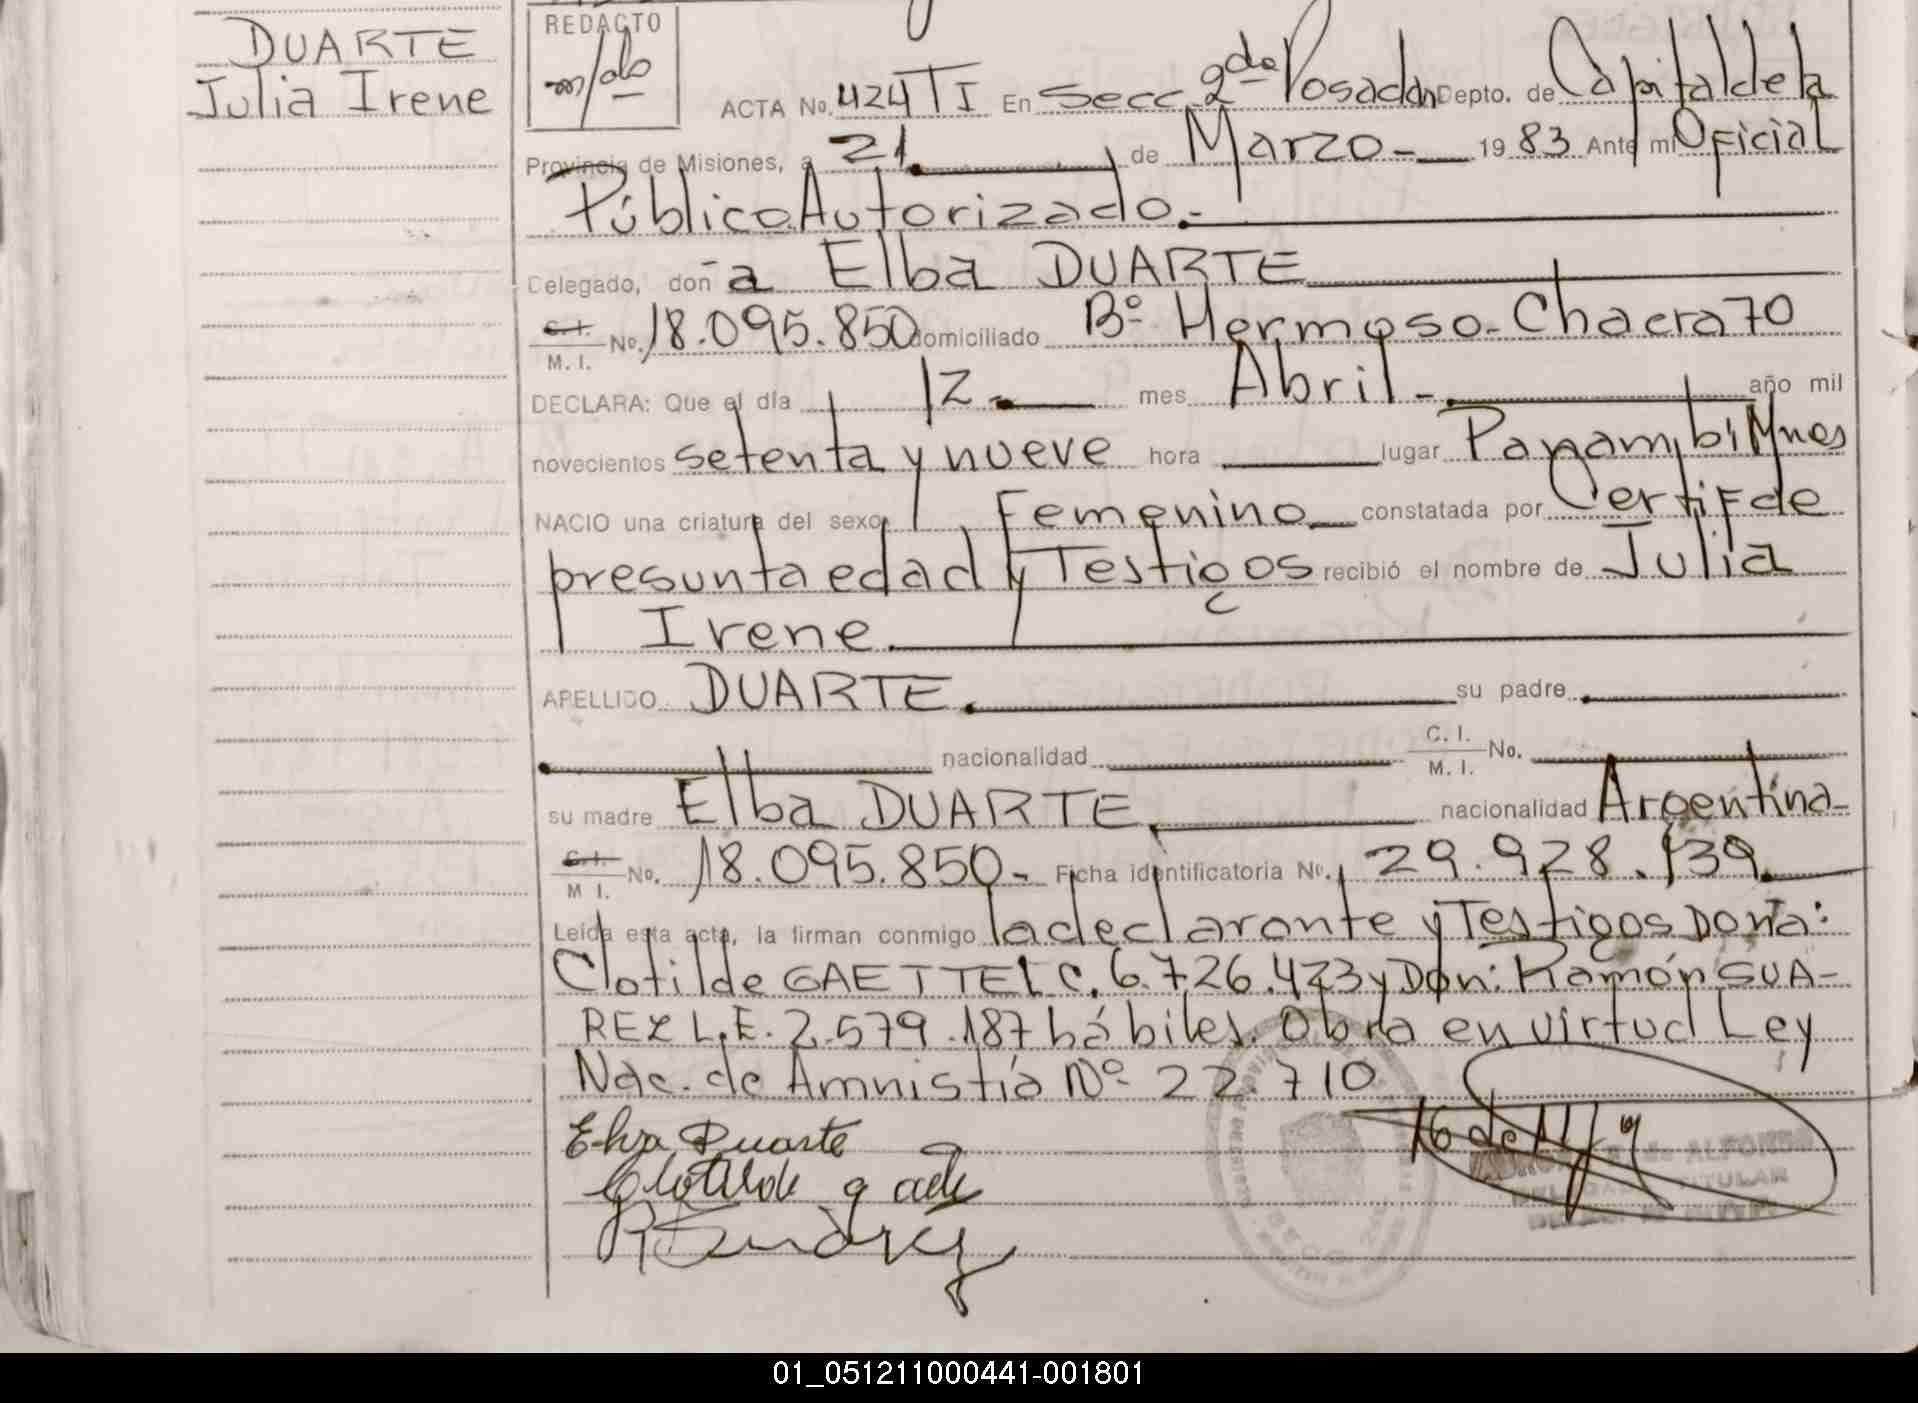 DUARTE
Julia Irene
REDACTO
ACTA No. 424 TI En Secc. 2da Posadas Depto. de Capital de la
Provincia de Misiones, a 21 de Marzo 1983 Ante mi Oficial
Público Autorizado.-
Delegado, doña Elba DUARTE
C.I. M. I. No. 18.095.850 domiciliado Bº Hermoso - Chacra 70
DECLARA: Que el día 12 mes Abril año mil
novecientos setenta y nueve hora lugar Panambi Mnes
NACIO una criatura del sexo Femenino constatada por Certif de
presunta edad y Testigos recibió el nombre de Julia
Irene
APELLIDO DUARTE su padre
nacionalidad C. I. M. I. No.
su madre Elba DUARTE nacionalidad Argentina
C.I. M I. No. 18.095.850- Ficha identificatoria No. 29.928.139
Leída esta acta, la firman conmigo la declarante y Testigos Doña:
Clotilde GAETTE L.C. 6.726.423 y Don: Ramón SUA-
REZ L.E. 2.579.187 hábiles. Obra en virtud Ley
Nac. de Amnistía Nº 22.710
Elva Duarte
Clotilde
TITULAR
01_051211000441-001801